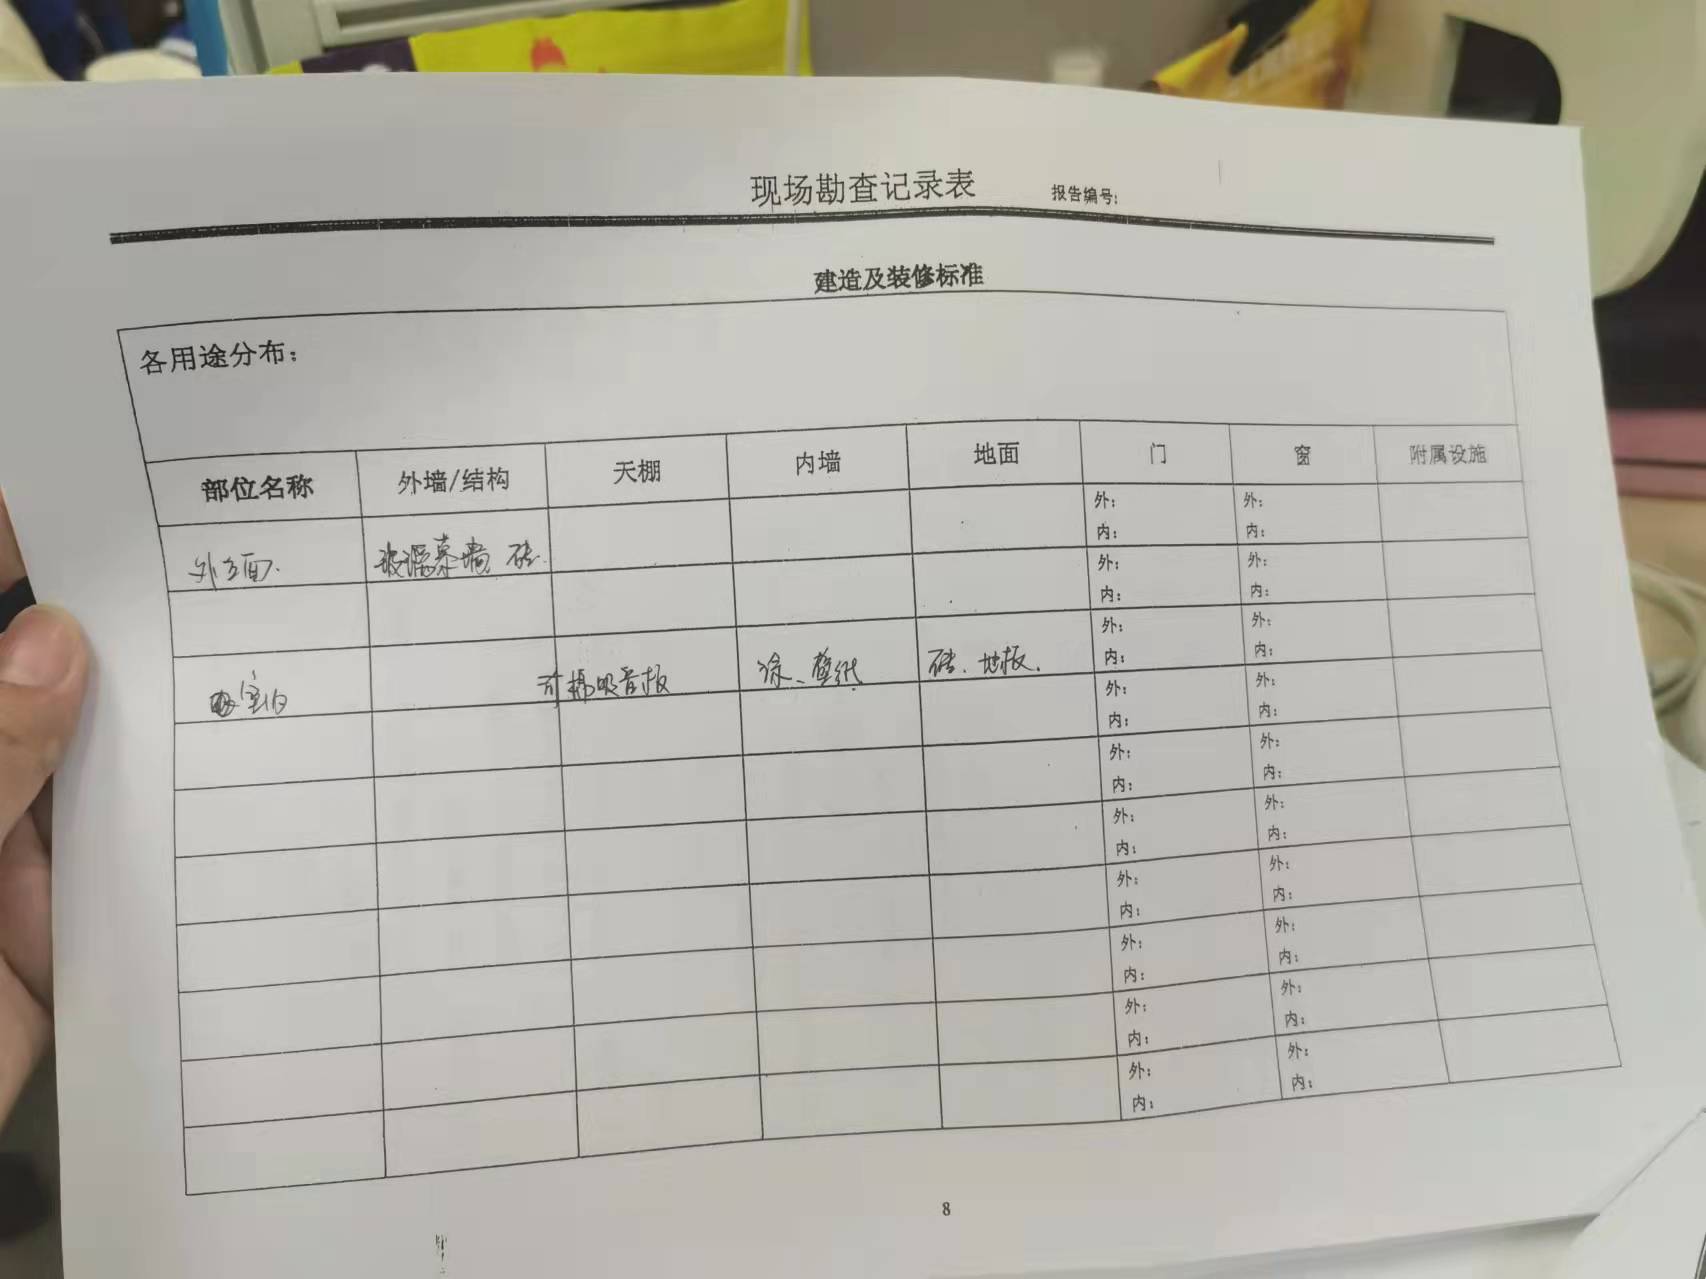 现场勘查记录表 报告编号:
建造及装修标准
各用途分布:
部位名称 外墙/结构 天棚 内墙 地面 门 窗 附属设施
外: 外:
外立面. 玻璃幕墙 砖. 内: 内:
外: 外:
内: 内:
外: 外:
室内 矿棉吸音板 涂、壁纸 砖、地板. 内: 内:
外: 外:
内: 内:
外: 外:
内: 内:
外: 外:
内: 内:
外: 外:
内: 内:
外: 外:
内: 内:
外: 外:
内: 内:
外: 外:
内: 内:
8